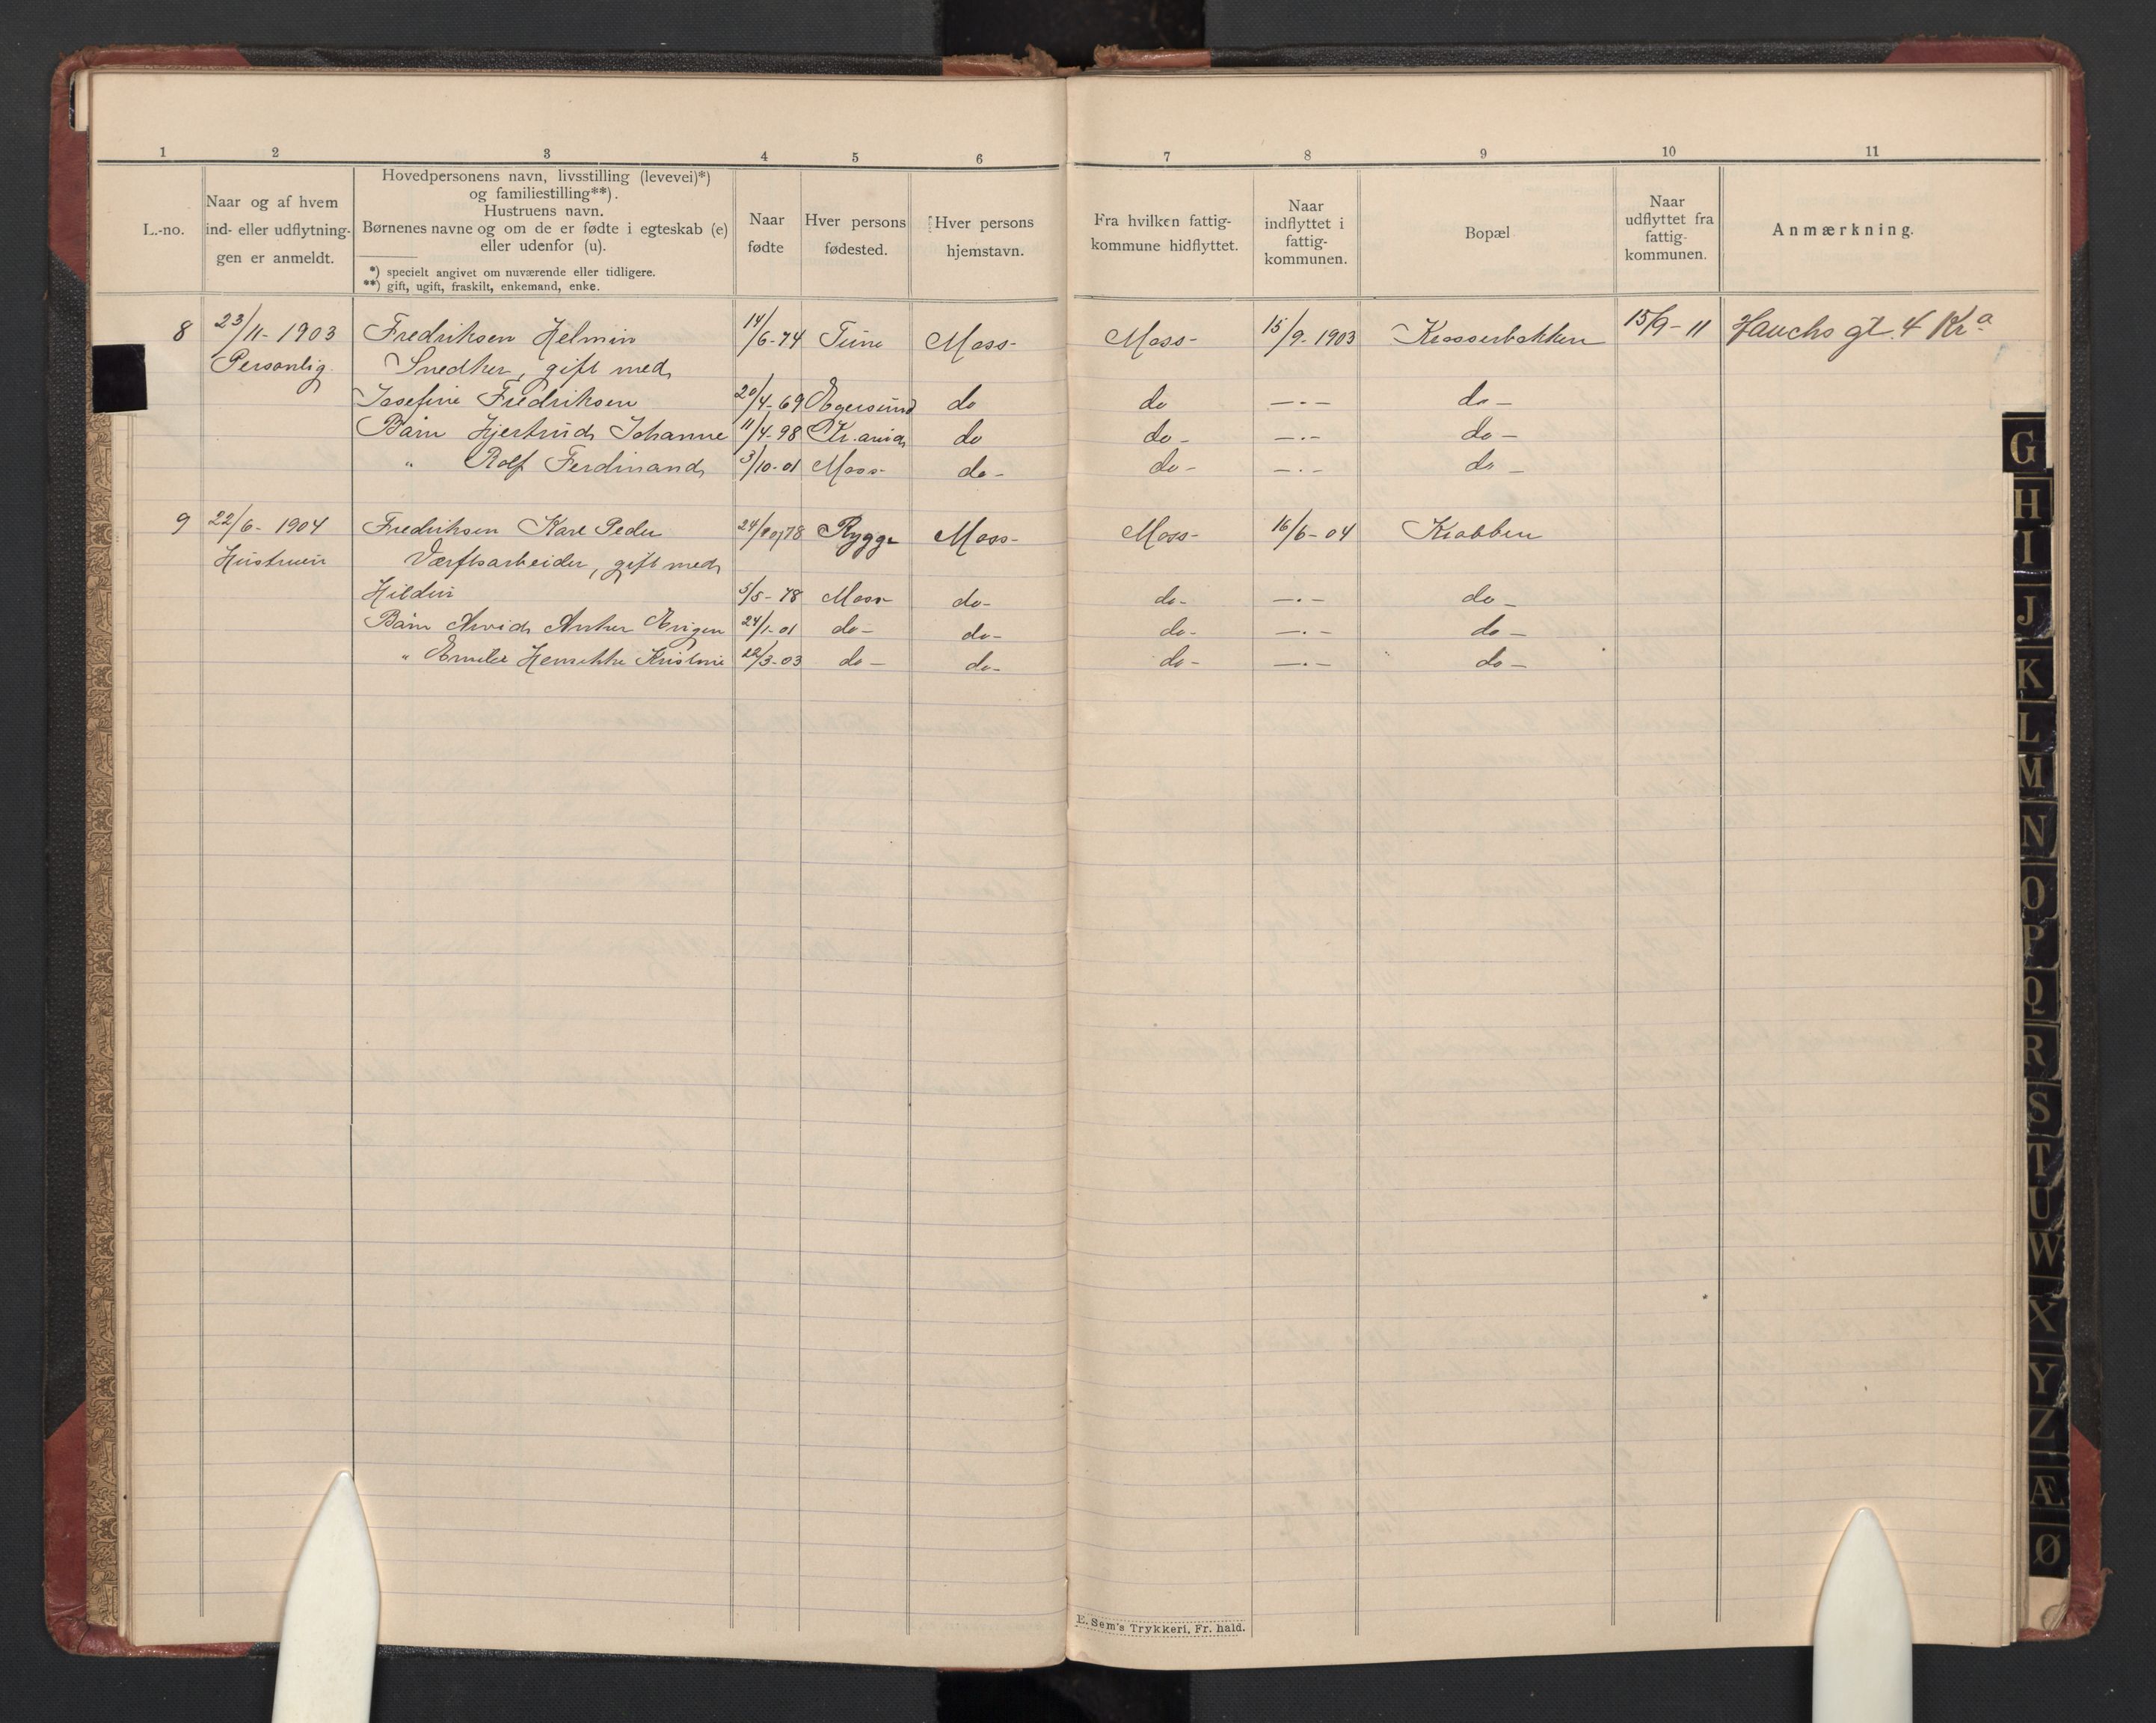 1 2 3 4 5 6 7 8 9 10 11
L.-no.
Naar og af hvem
ind- eller udflytnin-
gen er anmeldt.
Hovedpersonens navn, livsstilling (levevei)*)
og familiestilling**).
Hustruens navn.
Børnenes navne og om de er fødte i egteskab (e)
eller udenfor (u).
*) specielt angivet om nuværende eller tidligere.
**) gift, ugift, fraskilt, enkemand, enke.
Naar
fødte
Hver persons
fødested.
Hver persons
hjemstavn.
Fra hvilken fattig-
kommune hidflyttet.
Naar
indflyttet i
fattig-
kommunen.
Bopæl
Naar
udflyttet fra
fattig-
kommunen.
Anmærkning.
8 23/11-1903 Fredriksen Helmin 14/6-74 Tune Moss- Moss- 15/9-1903 Krosserbakken 15/9-11 Hauchs gt. 4 Kr.a
Personlig Snedker, gift med
Josefine Fredriksen 20/4-69 Egersund do do —.— do—
Barn Hjertrud Johanne 11/4-98 Kr.and do do- —.— do—
" Rolf Ferdinand 3/10-01 Moss- do- do- —.— do—
9 22/6-1904 Fredriksen Karl Peder 24/ 78 Rygge Moss- Moss- 16/6-04 Krabben
Hustruen Værftsarbeider, gift med
Hildur 5/5-78 Moss- do- do- —.— do—
Barn Arvid Anker Eugen 24/1-01 do- do- do- —.— do—
" Emilie Henrikke Kristine 22/3-03 do- do- do- —.— do—
E. Sem's Trykkeri, Fr. hald.
G
H
I
J
K
L
M
N
O
P
Q
R
S
T
U
W
X
Y
Z
Æ
Ø